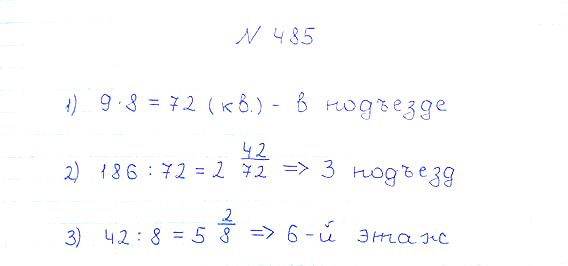 N 485
1) 9·8 = 72 (кв.) - в подъезде
2) 186 : 72 = 2 42/72 => 3 подъезд
3) 42 : 8 = 5 2/8 => 6-й этаж